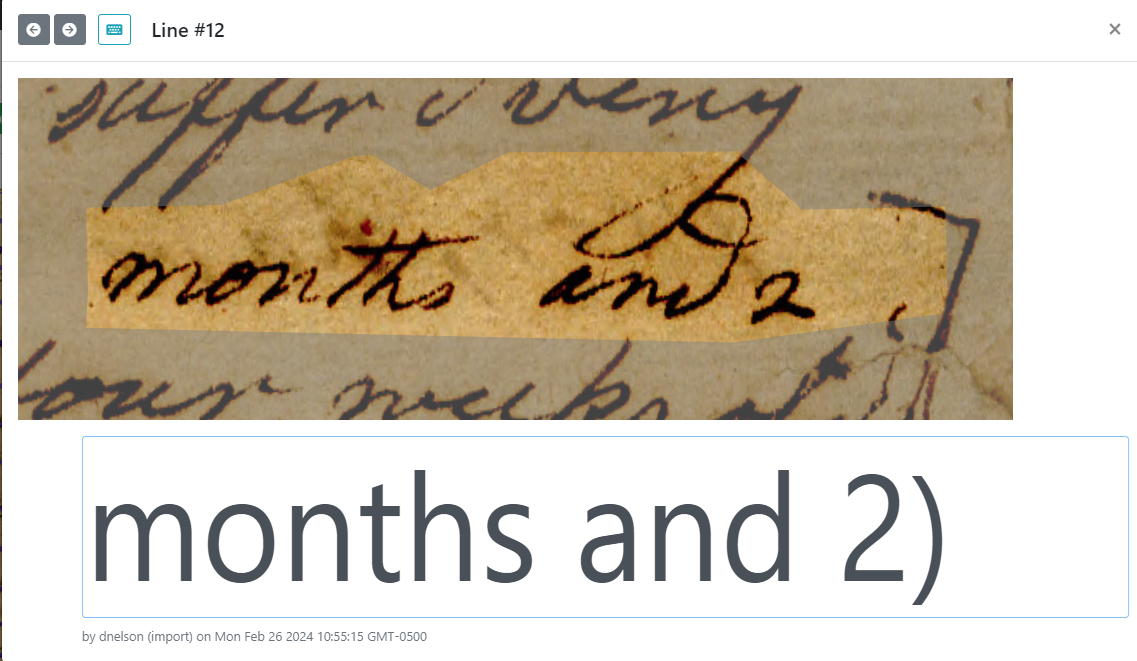 Line #12
suffer & very
months and 2
four weeks
months and 2)
by dnelson (import) on Mon Feb 26 2024 10:55:15 GMT-0500